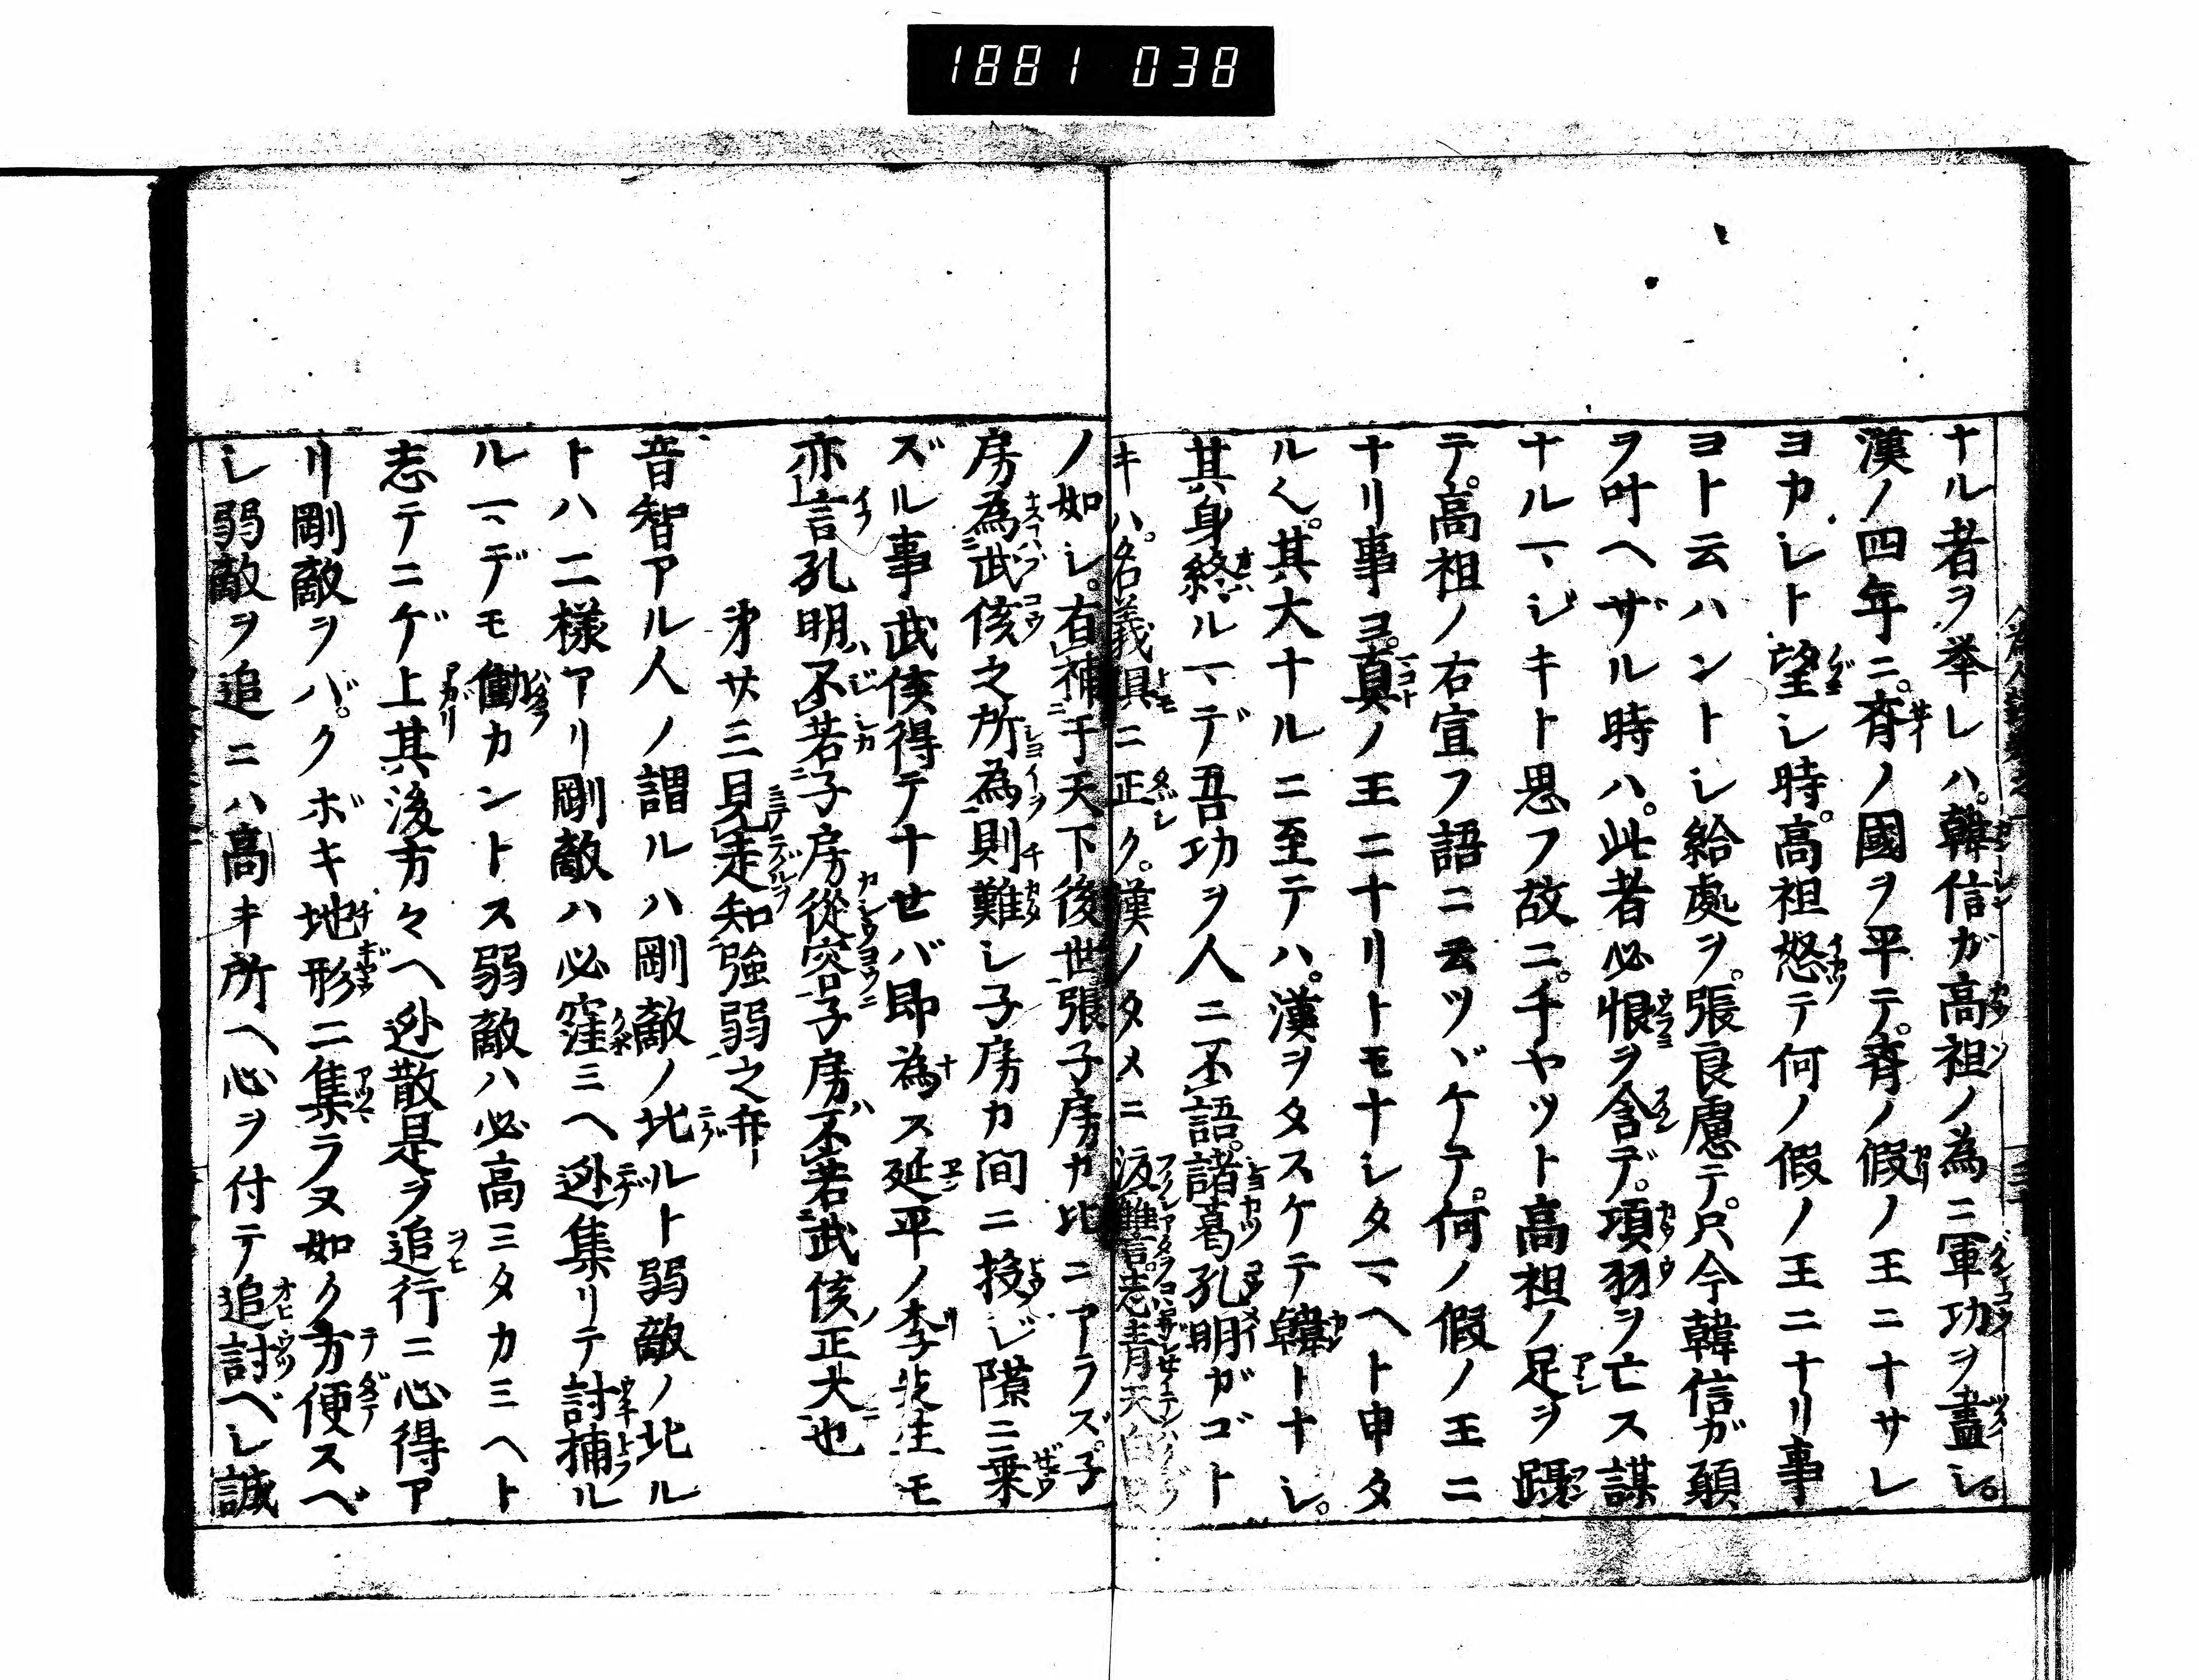 1881 038
ナル者ヲ挙レハ。韓信ガ高祖ノ為ニ軍功ヲ盡シ。
漢ノ四年ニ。斉ノ國ヲ平テ。斉ノ假ノ王ニナサレ
ヨカレト望シ時。高祖怒テ何ノ假ノ王ニナリ事
ヨト云ハントシ給處ヲ。張良慮テ。只今韓信ガ願
ヲ叶ヘザル時ハ。此者必恨ヲ含デ。項羽ヲ亡ス謀
ナルヿジキト思フ故ニ。千ヤツト高祖ノ足ヲ躡
テ。高祖ノ右宣フ語ニ云ツヾケテ。何ノ假ノ王ニ
ナリ事ヨ。真ノ王ニナリトモナシタマヘト申タ
ルヘ。其大ナルニ至テハ。漢ヲタスケテ韓トナシ。
其身終ルマデ吾功ヲ人ニ不語。諸葛孔明ガゴト
キハ。名義俱ニ正ク。漢ノタメニ 讎 志青天
ノ如シ。右補于天下後世張子房ガ比ニアラズ。子
房為武侯之所為則難シ子房カ間ニ投ジ隙ニ乗
ズル事武侯得テナせバ即為ス延平ノ李先生モ
亦言孔明不若子房從容子房不若武侯正大也
第廿三見走知強弱之弁
音智アル人ノ謂ルハ剛敵ノ北ルト弱敵ノ北ル
トハ二様アリ剛敵ハ必窪ミヘ迯集リテ討捕ル
ルマデモ働カントス弱敵ハ必高ミタカミヘト
志テニゲ上其後方々ヘ迯散是ヲ追行ニ心得ア
リ剛敵ヲバ。クボキ地形ニ集ラヌ如ク方便スベ
シ弱敵ヲ追ニハ高キ所ヘ心ヲ付テ追討ベシ誠